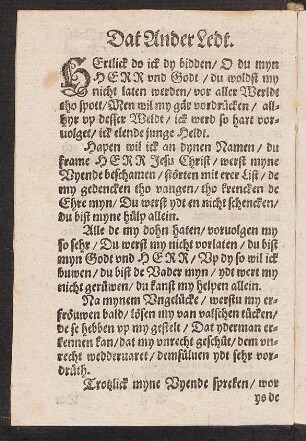 Dat Ander Ledt.
HErtlick do ick dy bidden/ O du myn
HERR vnd Godt/ du woldst my
nicht laten werden/ vor aller Werldt
tho spott/ Men wil my gär vordrücken/ all-
hyr vp desser Weldt/ ick werd so hart vor-
uolget/ ick elende junge Heldt.
Hapen wil ick an dynen Namen/ du
frame HERR Jesu Christ/ werst myne
Vyende beschamen/ störten mit erer List/ de
my gedencken tho vangen/ tho krencken de
Ehre myn/ Du werst ydt en nicht schencken/
du bist myne hülp allein.
Alle de my dohn haten/ voruolgen my
so sehr/ Du werst my nicht vorlaten/ du bist
myn Godt vnd HERR/ Vp dy so wil ick
buwen/ du bist de Vader myn/ ydt wert my
nicht gerüwen/ du kanst my helpen allein.
Na mynem Vngelücke/ werstu my er-
fröuwen bald/ lösen my van valschen tücken/
de se hebben vp my gestelt/ Dat yderman er-
kennen kan/ dat my vnrecht geschüt/ dem vn-
recht wedderuaret/ demsüluen ydt sehr vor-
drüth.
Trotzlick myne Vyende spreken/ wor
ys de